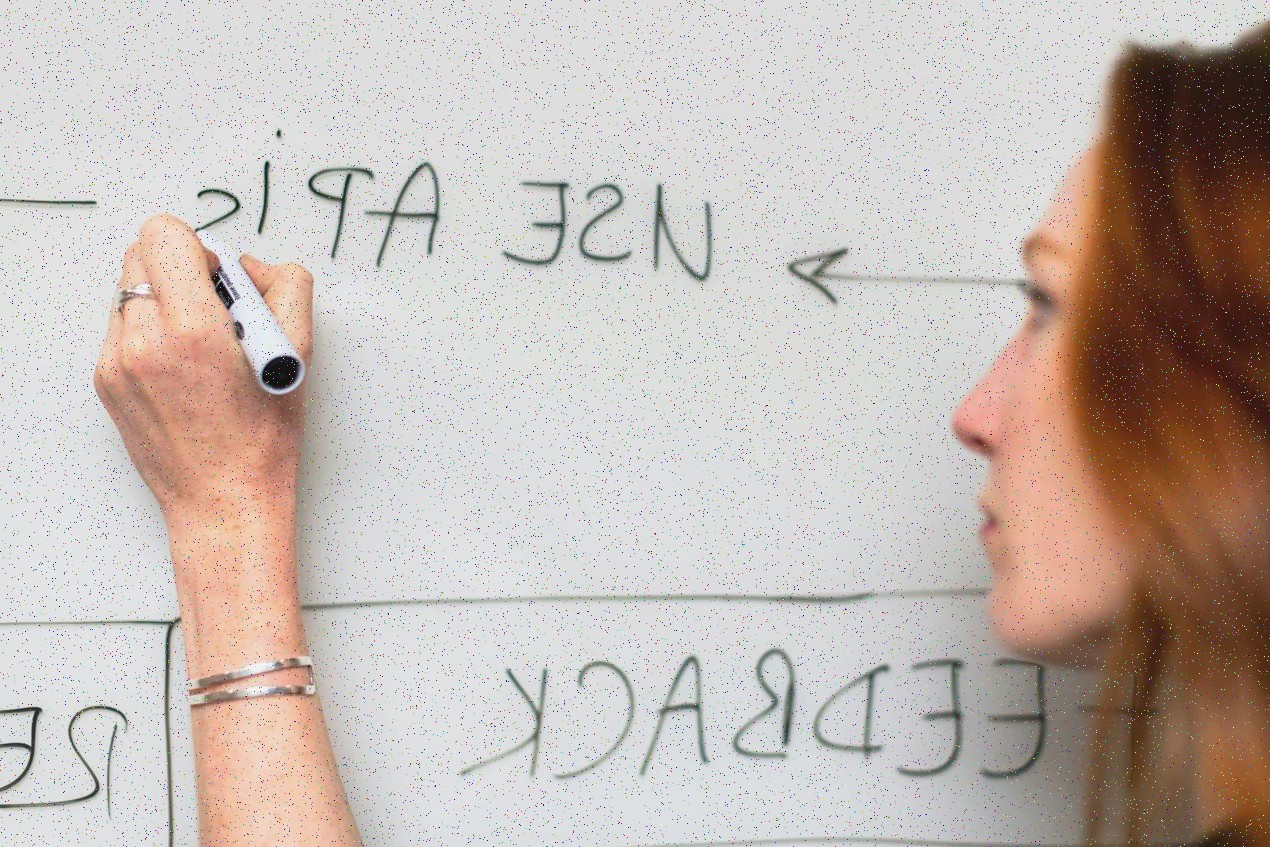 USE APis
FEEDBACK